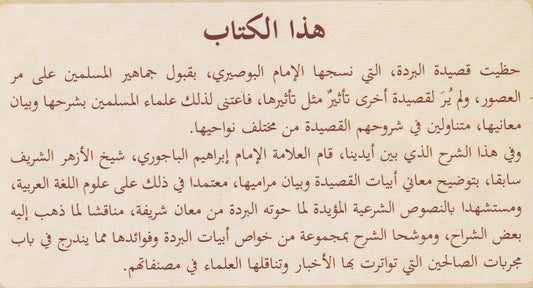 هذا الكتاب
حظيت قصيدة البردة، التي نسجها الإمام البوصيري، بقبول جماهير المسلمين على مر
العصور، ولم يُرَ لقصيدة أخرى تأثيرٌ مثل تأثيرها، فاعتنى لذلك علماء المسلمين بشرحها وبيان
معانيها، متناولين في شروحهم القصيدة من مختلف نواحيها.
وفي هذا الشرح الذي بين أيدينا، قام العلامة الإمام إبراهيم الباجوري، شيخ الأزهر الشريف
سابقا، بتوضيح معاني أبيات القصيدة وبيان مراميها، معتمدا في ذلك على علوم اللغة العربية،
ومستشهدا بالنصوص الشرعية المؤيدة لما حوته البردة من معان شريفة، مناقشا لما ذهب إليه
بعض الشراح، وموشحا الشرح بمجموعة من خواص أبيات البردة وفوائدها مما يندرج في باب
مجربات الصالحين التي تواترت بها الأخبار وتناقلها العلماء في مصنفاتهم.